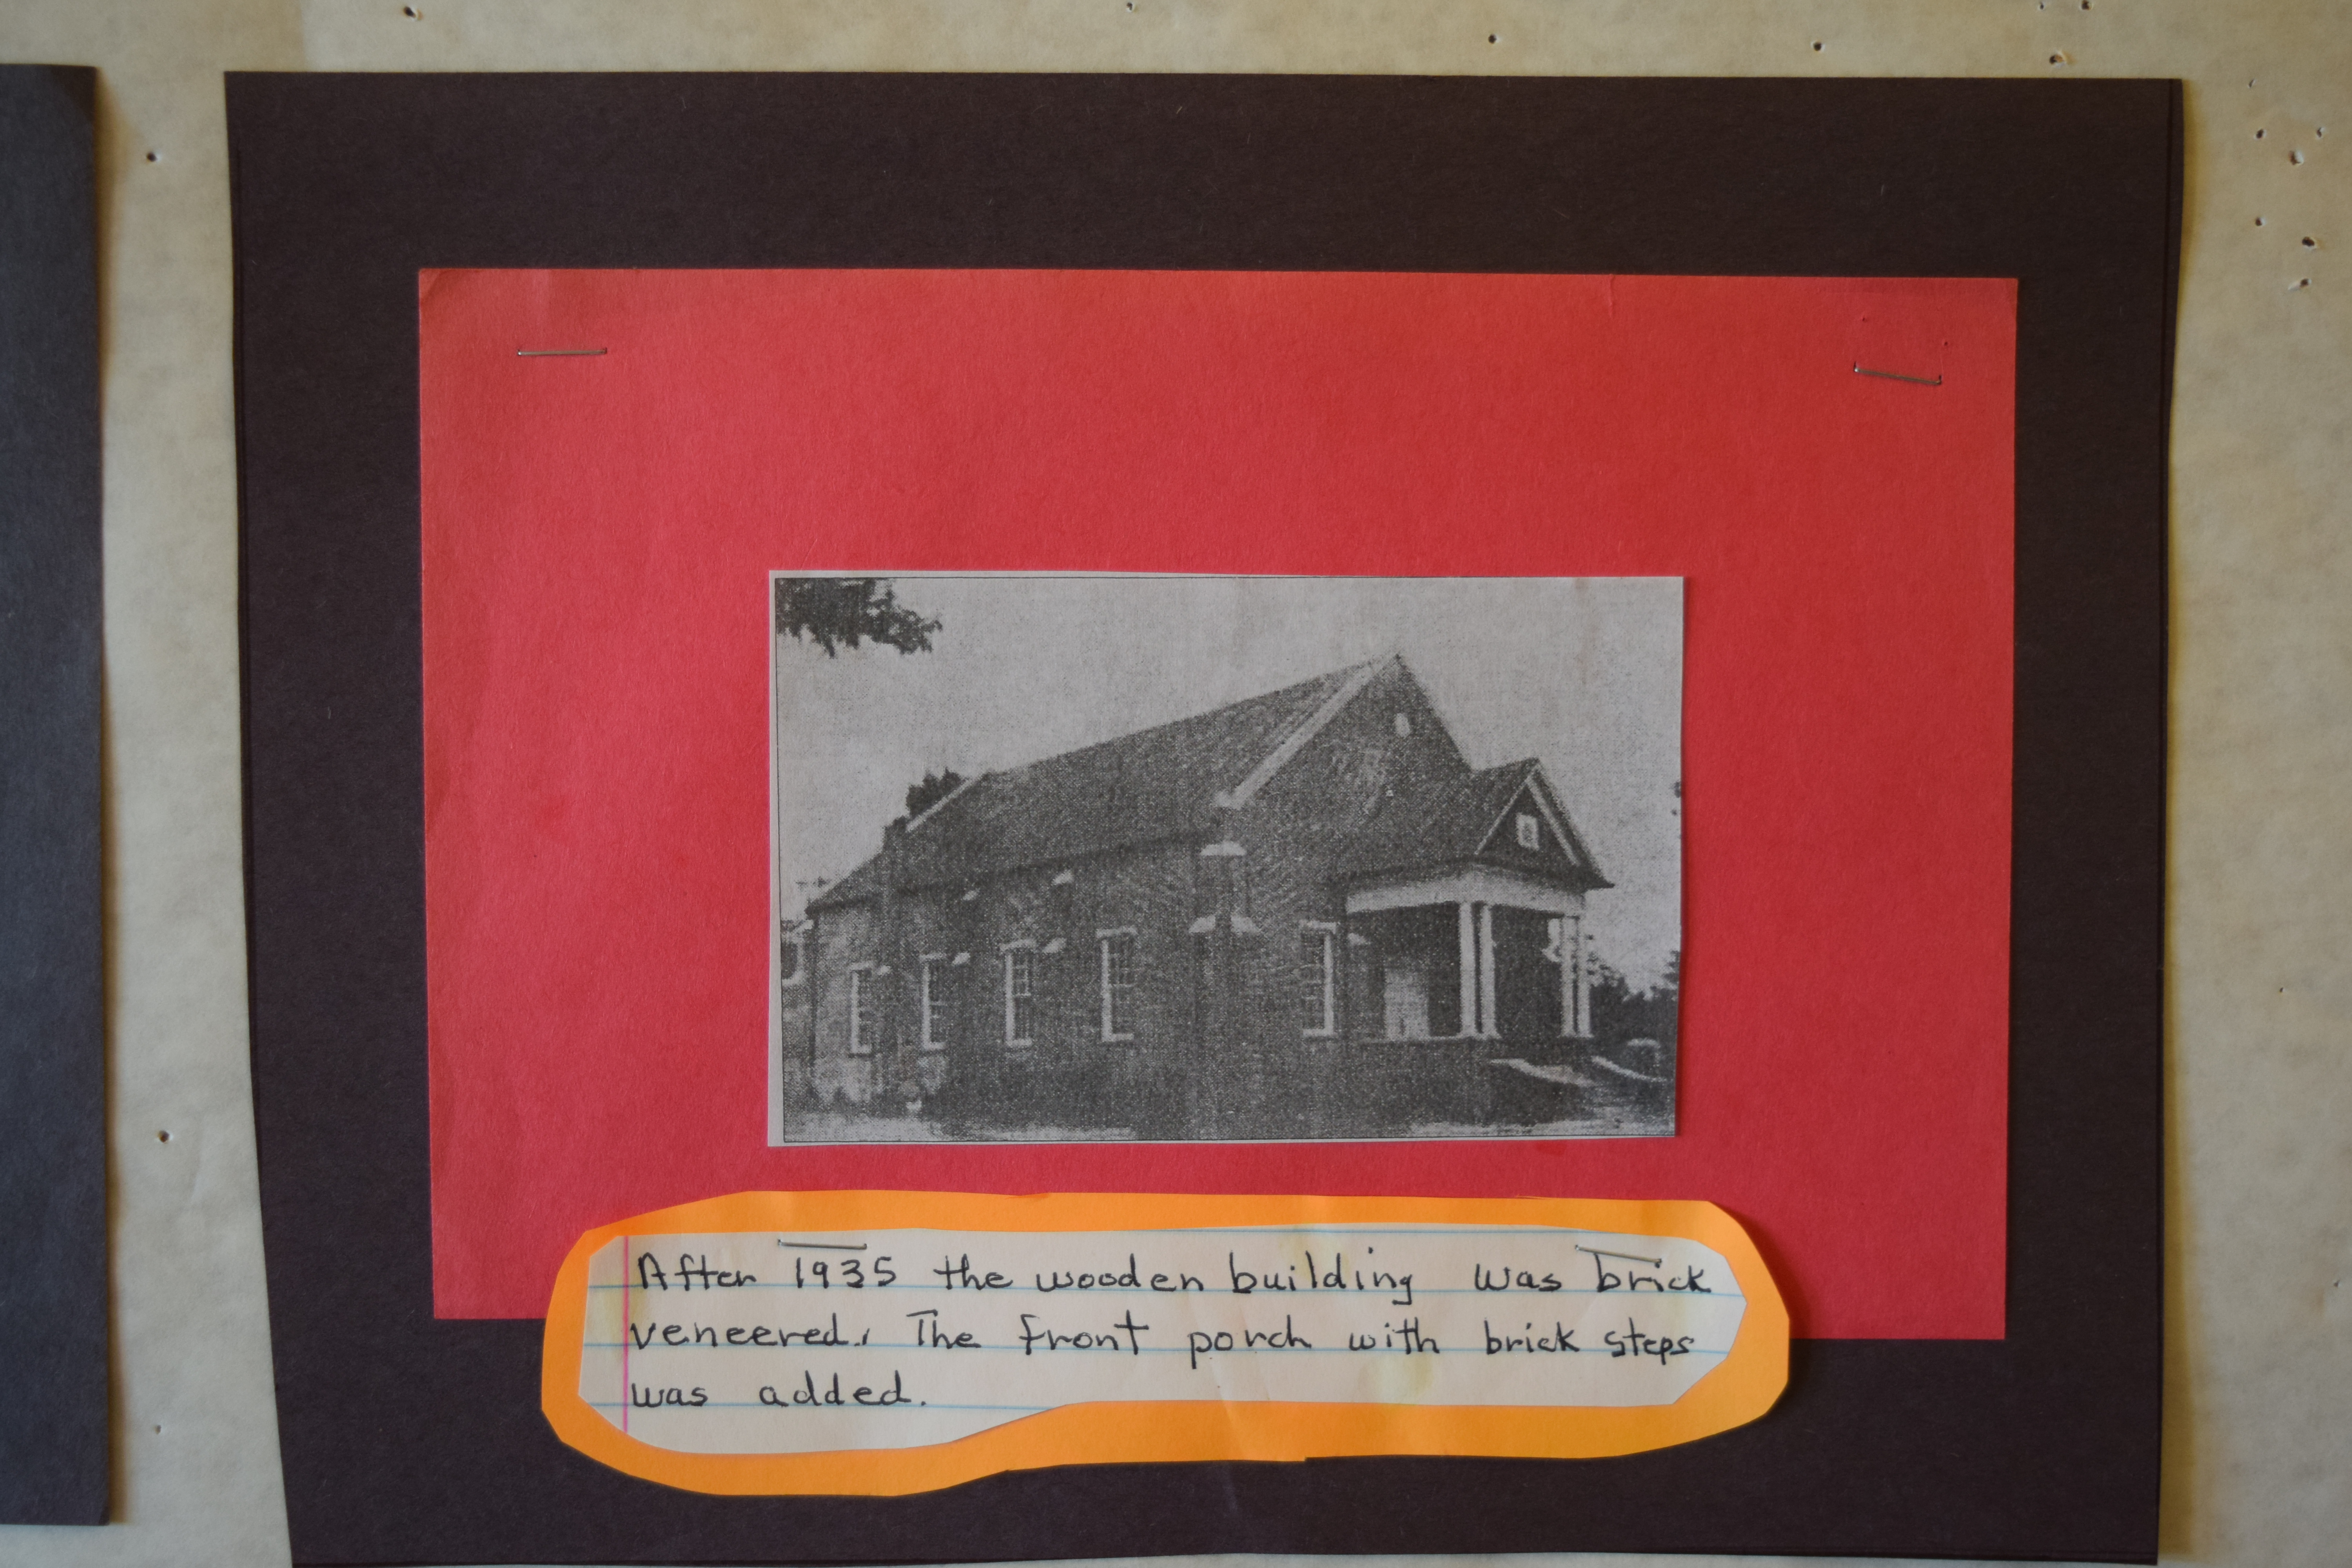 After 1935 the wooden building was brick
veneered. The front porch with brick steps
was added.